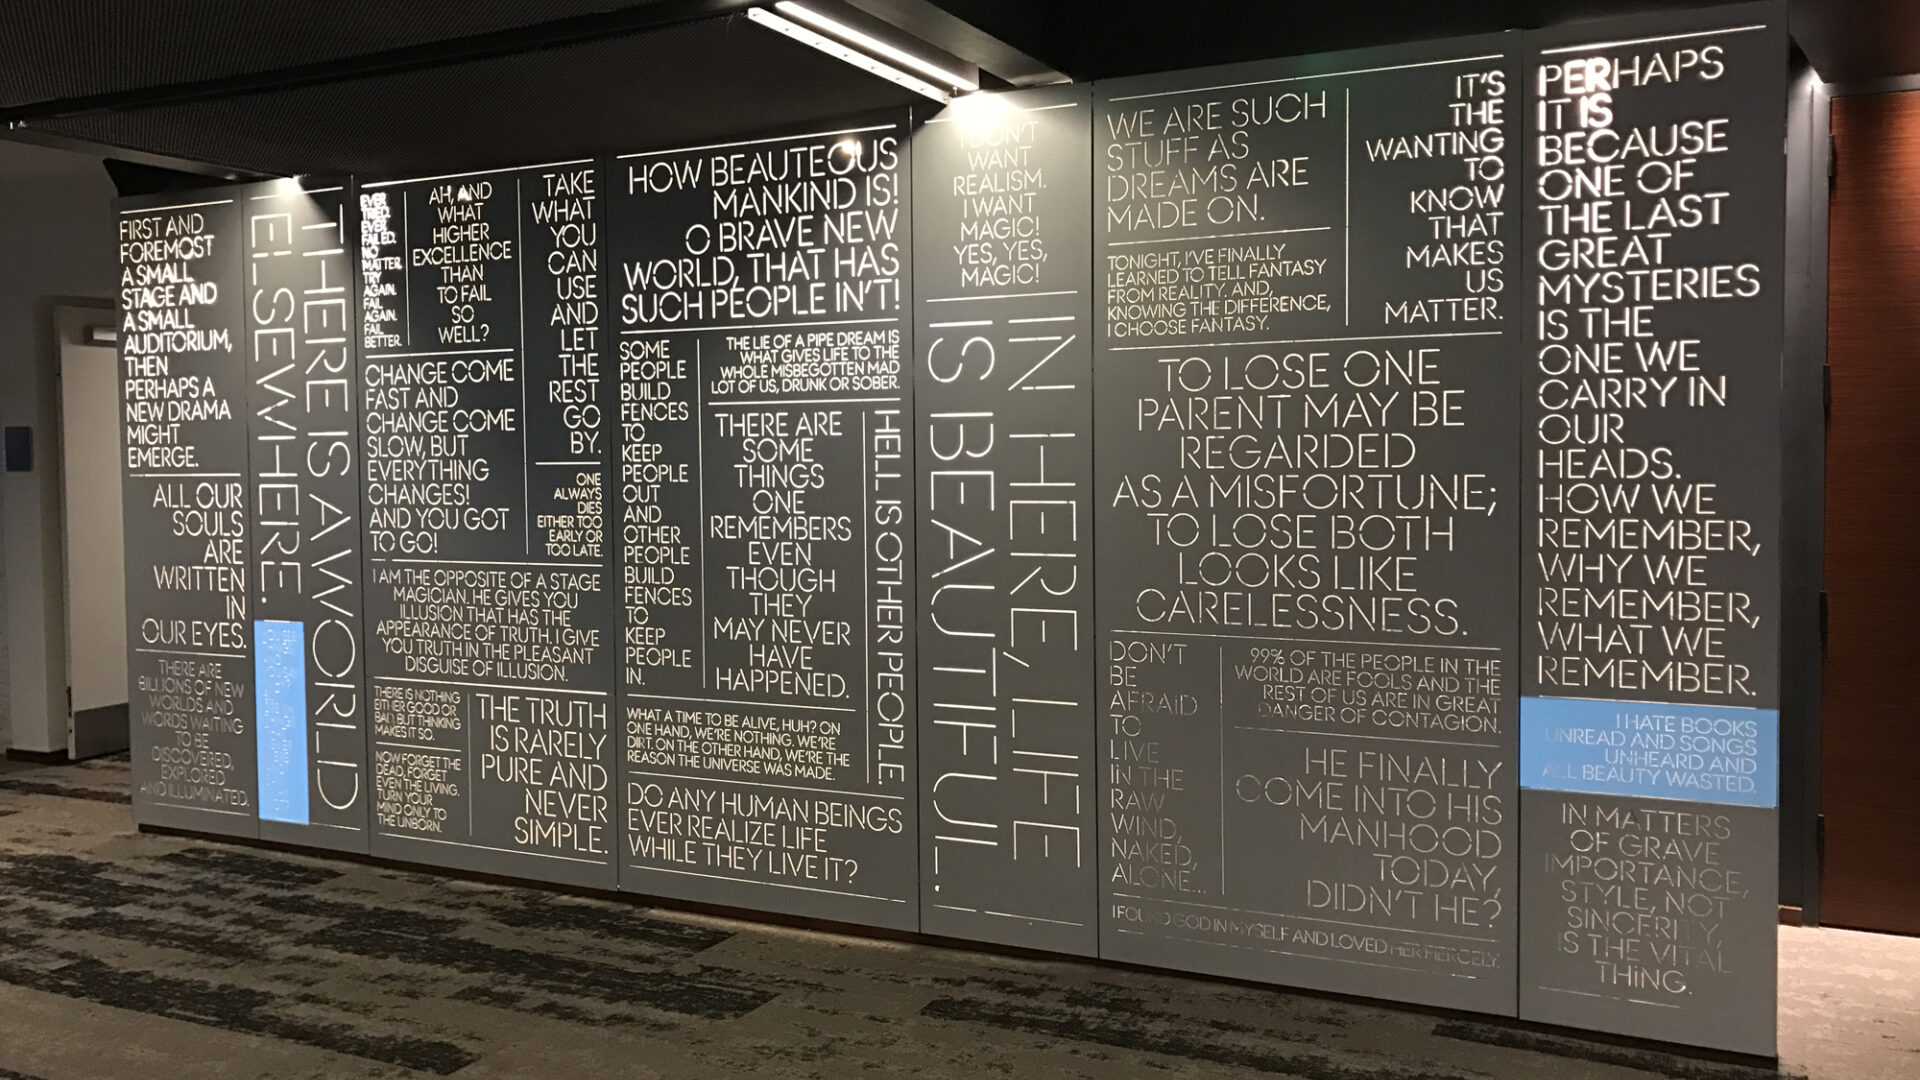 FIRST AND
FOREMOST
A SMALL
STAGE AND
A SMALL
AUDITORIUM,
THEN
PERHAPS A
NEW DRAMA
MIGHT
EMERGE.
ALL OUR
SOULS
ARE
WRITTEN
IN
OUR EYES.
THERE ARE
BILLIONS OF NEW
WORLDS AND
WORDS WAITING
TO BE
DISCOVERED,
EXPLORED
AND ILLUMINATED.
THERE IS A WORLD
ELSEWHERE.
EVER
TRIED.
EVER
FAILED.
NO
MATTER.
TRY
AGAIN.
FAIL
AGAIN.
FAIL
BETTER.
AH, AND
WHAT
HIGHER
EXCELLENCE
THAN
TO FAIL
SO
WELL?
TAKE
WHAT
YOU
CAN
USE
AND
LET
THE
REST
GO
BY.
CHANGE COME
FAST AND
CHANGE COME
SLOW, BUT
EVERYTHING
CHANGES!
AND YOU GOT
TO GO!
ONE
ALWAYS
DIES
EITHER TOO
EARLY OR
TOO LATE.
I AM THE OPPOSITE OF A STAGE
MAGICIAN. HE GIVES YOU
ILLUSION THAT HAS THE
APPEARANCE OF TRUTH. I GIVE
YOU TRUTH IN THE PLEASANT
DISGUISE OF ILLUSION.
THERE IS NOTHING
EITHER GOOD OR
BAD, BUT THINKING
MAKES IT SO.
NOW FORGET THE
DEAD, FORGET
EVEN THE LIVING.
TURN YOUR
MIND ONLY TO
THE UNBORN.
THE TRUTH
IS RARELY
PURE AND
NEVER
SIMPLE.
HOW BEAUTEOUS
MANKIND IS!
O BRAVE NEW
WORLD, THAT HAS
SUCH PEOPLE IN'T!
SOME
PEOPLE
BUILD
FENCES
TO
KEEP
PEOPLE
OUT
AND
OTHER
PEOPLE
BUILD
FENCES
TO
KEEP
PEOPLE
IN.
THE LIE OF A PIPE DREAM IS
WHAT GIVES LIFE TO THE
WHOLE MISBEGOTTEN MAD
LOT OF US, DRUNK OR SOBER.
THERE ARE
SOME
THINGS
ONE
REMEMBERS
EVEN
THOUGH
THEY
MAY NEVER
HAVE
HAPPENED.
HELL IS OTHER PEOPLE.
WHAT A TIME TO BE ALIVE, HUH? ON
ONE HAND, WE'RE NOTHING. WE'RE
DIRT. ON THE OTHER HAND, WE'RE THE
REASON THE UNIVERSE WAS MADE.
DO ANY HUMAN BEINGS
EVER REALIZE LIFE
WHILE THEY LIVE IT?
I DON'T
WANT
REALISM.
I WANT
MAGIC!
YES, YES,
MAGIC!
IN HERE, LIFE
IS BEAUTIFUL.
WE ARE SUCH
STUFF AS
DREAMS ARE
MADE ON.
TONIGHT, I'VE FINALLY
LEARNED TO TELL FANTASY
FROM REALITY. AND,
KNOWING THE DIFFERENCE,
I CHOOSE FANTASY.
IT'S
THE
WANTING
TO
KNOW
THAT
MAKES
US
MATTER.
TO LOSE ONE
PARENT MAY BE
REGARDED
AS A MISFORTUNE;
TO LOSE BOTH
LOOKS LIKE
CARELESSNESS.
DON'T
BE
AFRAID
TO
LIVE
IN THE
RAW
WIND,
NAKED,
ALONE...
99% OF THE PEOPLE IN THE
WORLD ARE FOOLS AND THE
REST OF US ARE IN GREAT
DANGER OF CONTAGION.
HE FINALLY
COME INTO HIS
MANHOOD
TODAY,
DIDN'T HE?
I FOUND GOD IN MYSELF AND LOVED HER FIERCELY.
PERHAPS
IT IS
BECAUSE
ONE OF
THE LAST
GREAT
MYSTERIES
IS THE
ONE WE
CARRY IN
OUR
HEADS.
HOW WE
REMEMBER,
WHY WE
REMEMBER,
WHAT WE
REMEMBER.
I HATE BOOKS
UNREAD AND SONGS
UNHEARD AND
ALL BEAUTY WASTED.
IN MATTERS
OF GRAVE
IMPORTANCE,
STYLE, NOT
SINCERITY,
IS THE VITAL
THING.